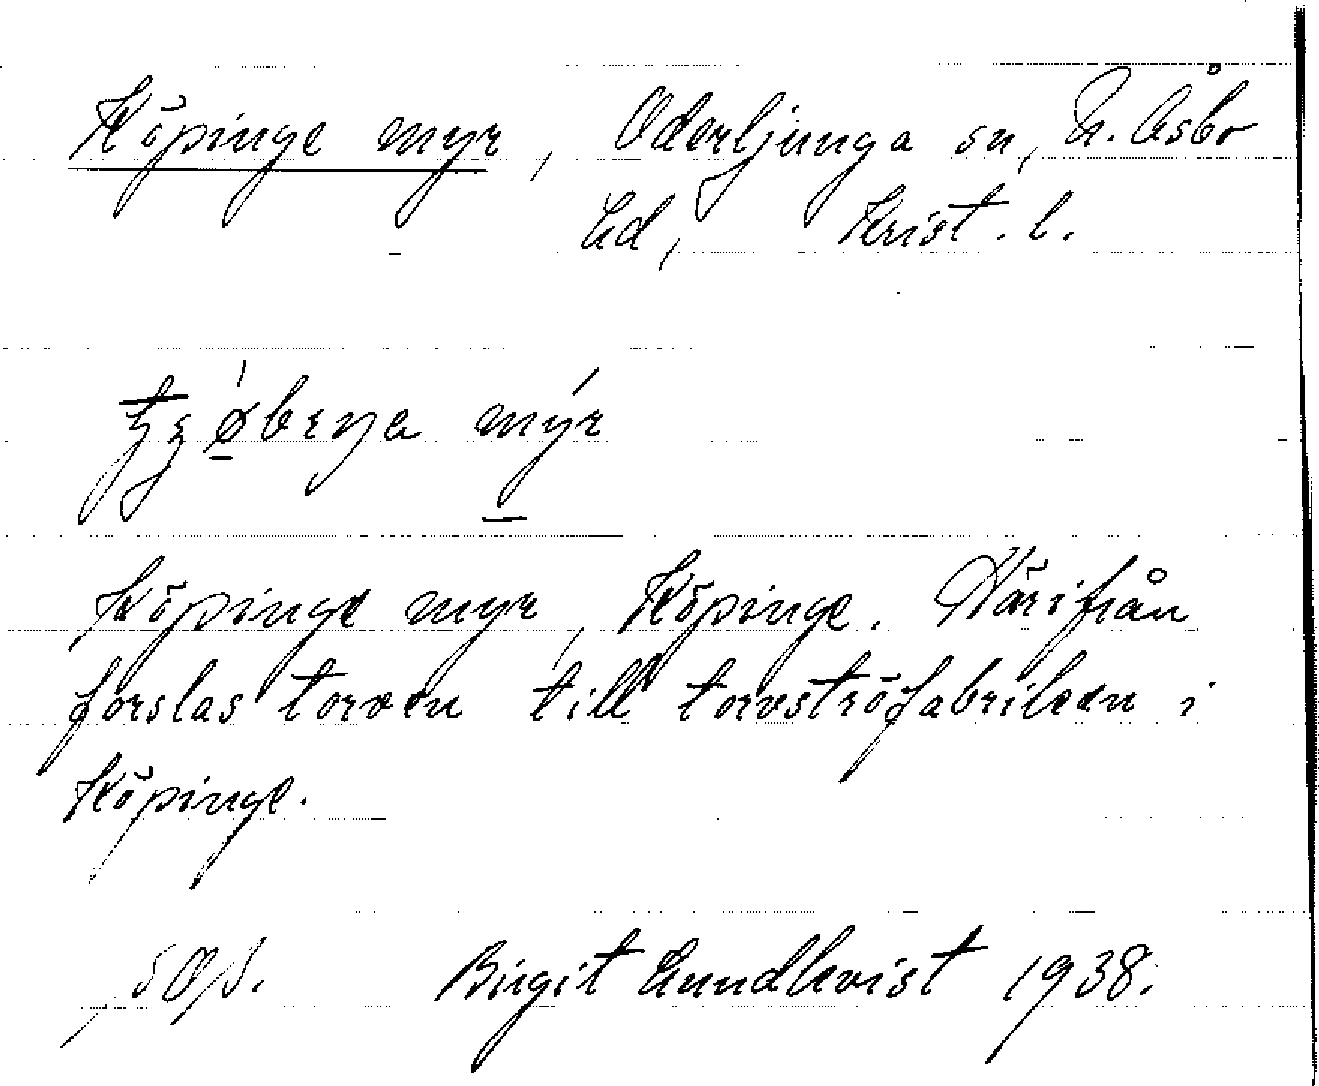 Köpinge myr, Oderljunga sn, N. Åsbo
hd, Krist. l.
mýr
Köpinge myr, Köpinge. Härifrån
forslas torven till torvströfabriken i
Köpinge.
Birgit Lundkvist 1938.